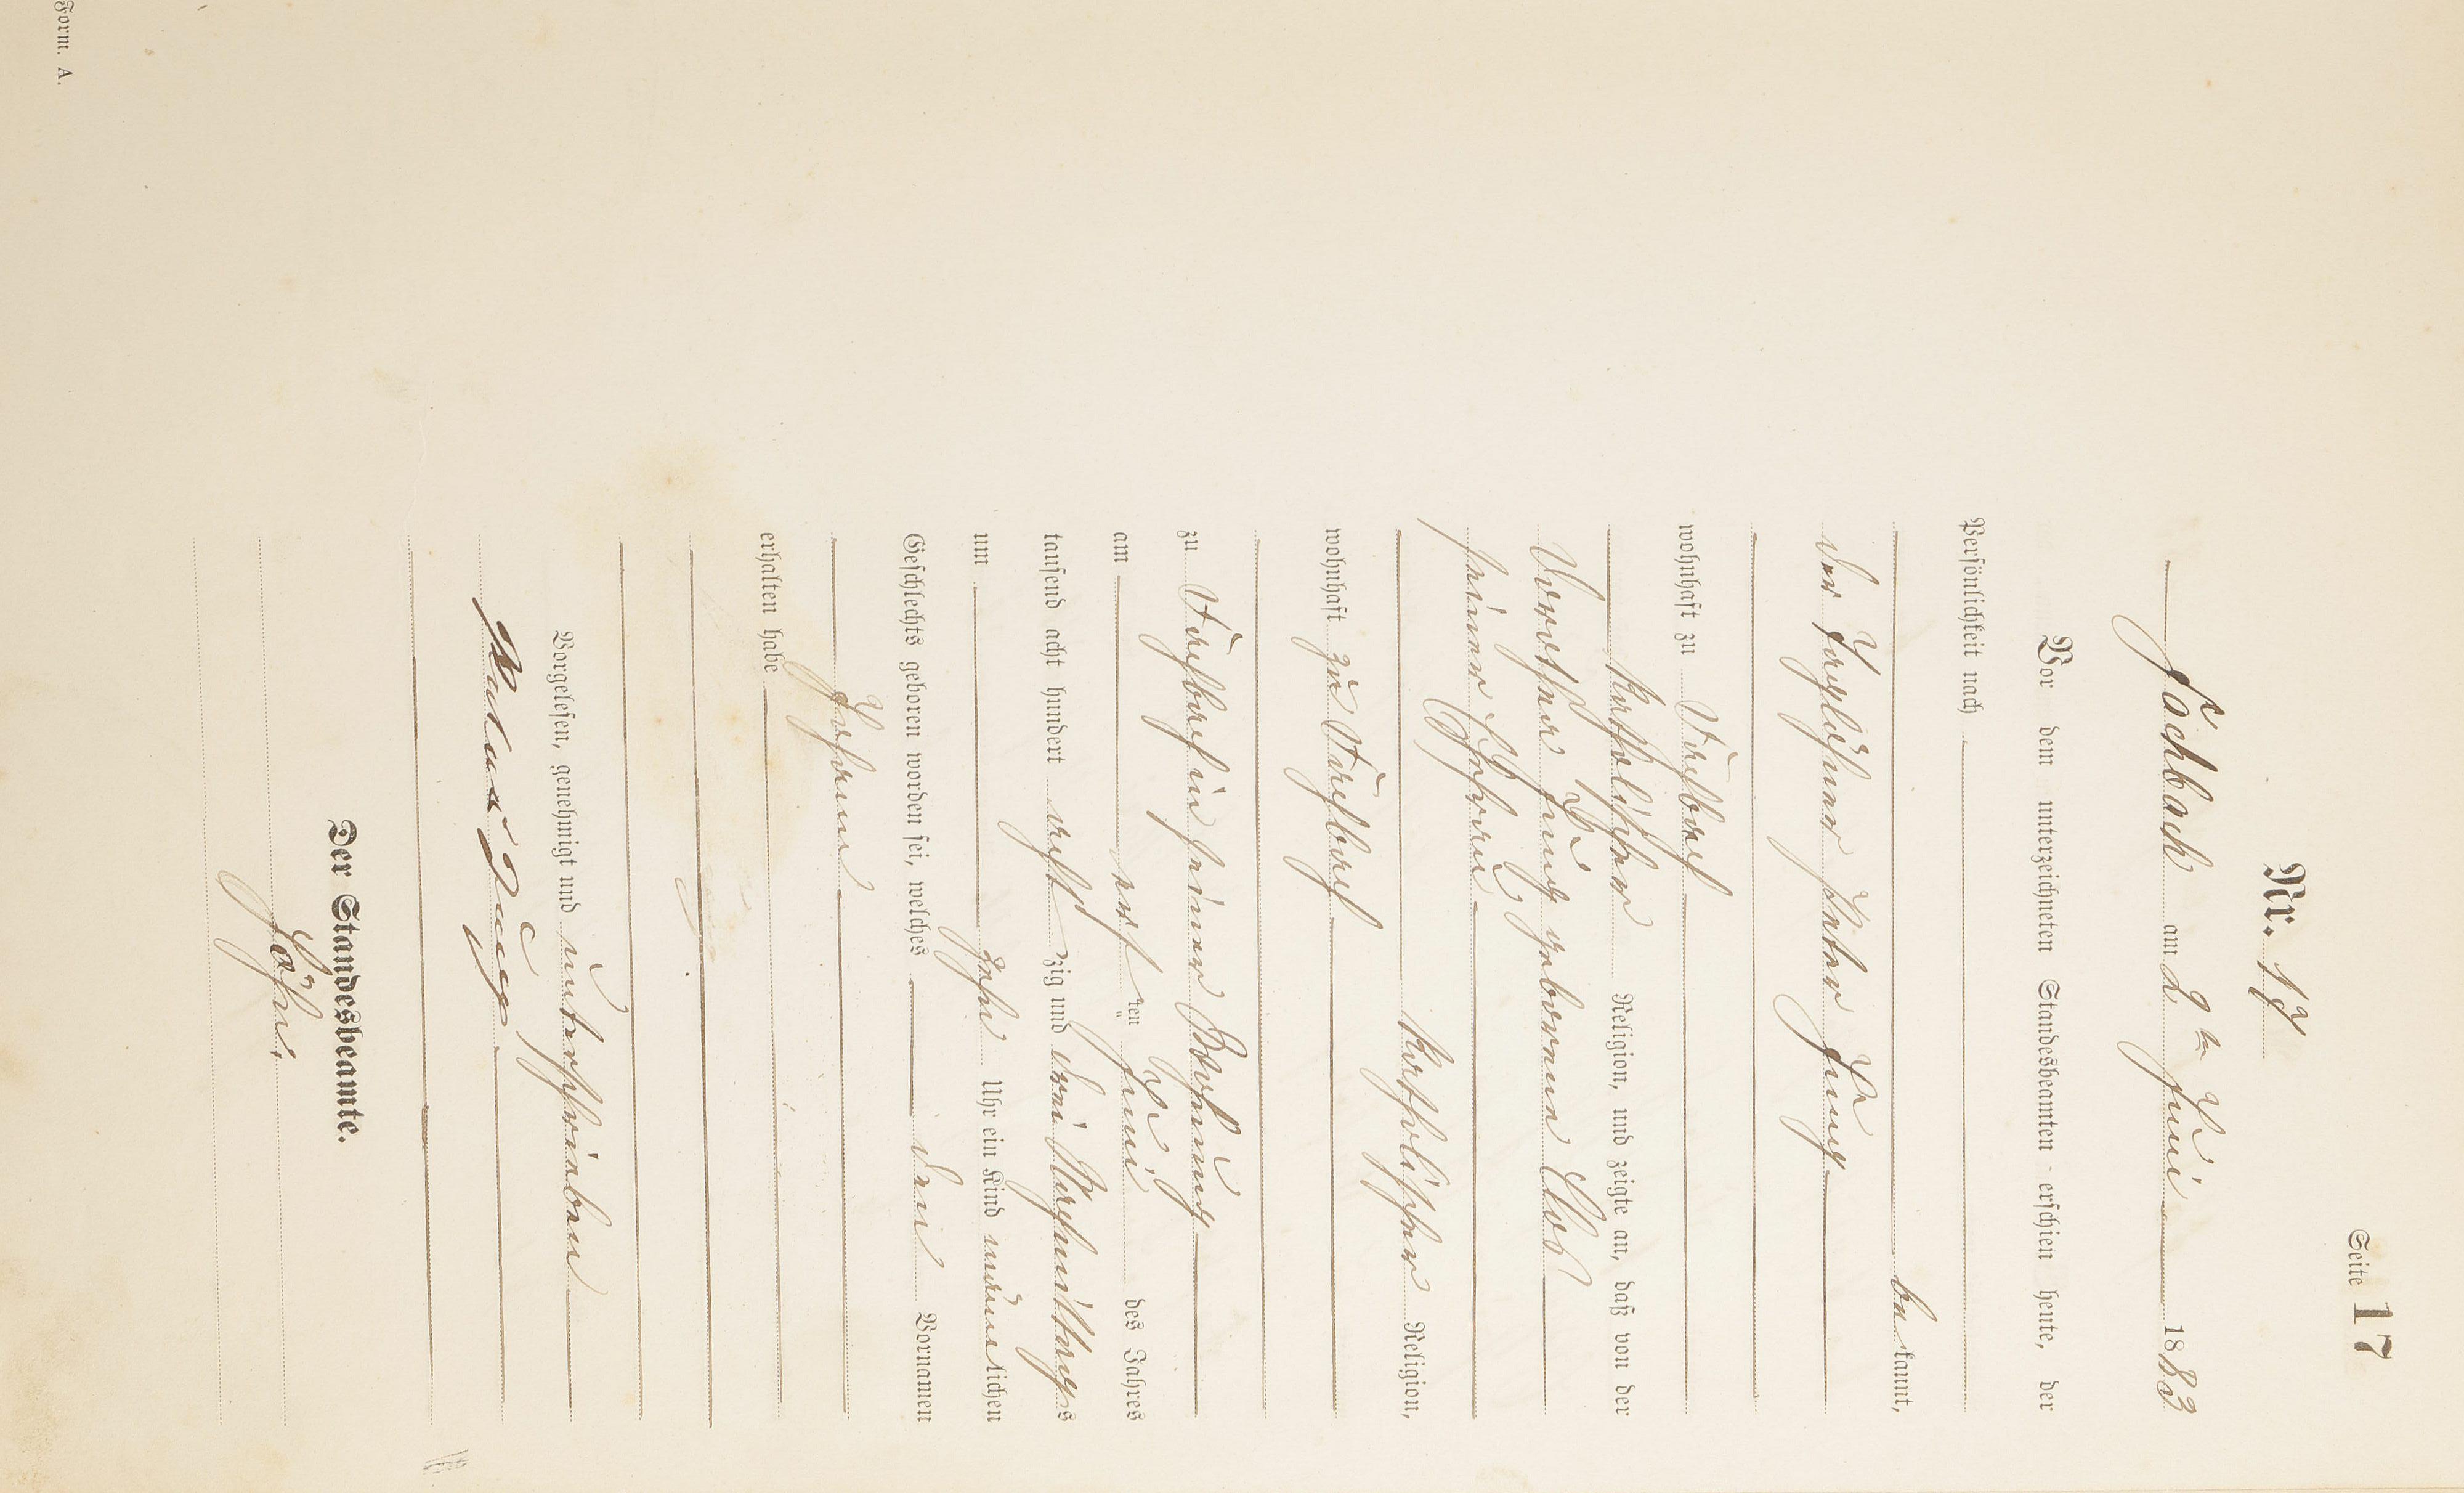 Seite 17
Nr. 17
Fockbach am 2ten Juni 1883
Vor dem unterzeichneten Standesbeamten erschien heute, der
Persönlichkeit nach
bekannt,
der Taglöhner Peter Jung
wohnhaft zu
katholischer Religion, und zeigte an, daß von der
Dorothea Jung geborene
seiner Ehefrau
katholischer Religion,
wohnhaft zu
zu in seiner Wohnung
am ersten Juni des Jahres
tausend acht hundert achtzig und drei Nachmittags
um zehn Uhr ein Kind männlichen
Geschlechts geboren worden sei, welches den Vornamen
Johann
erhalten habe
Vorgelesen, genehmigt und unterschrieben
Peter Jung
Der Standesbeamte.
Form. A.